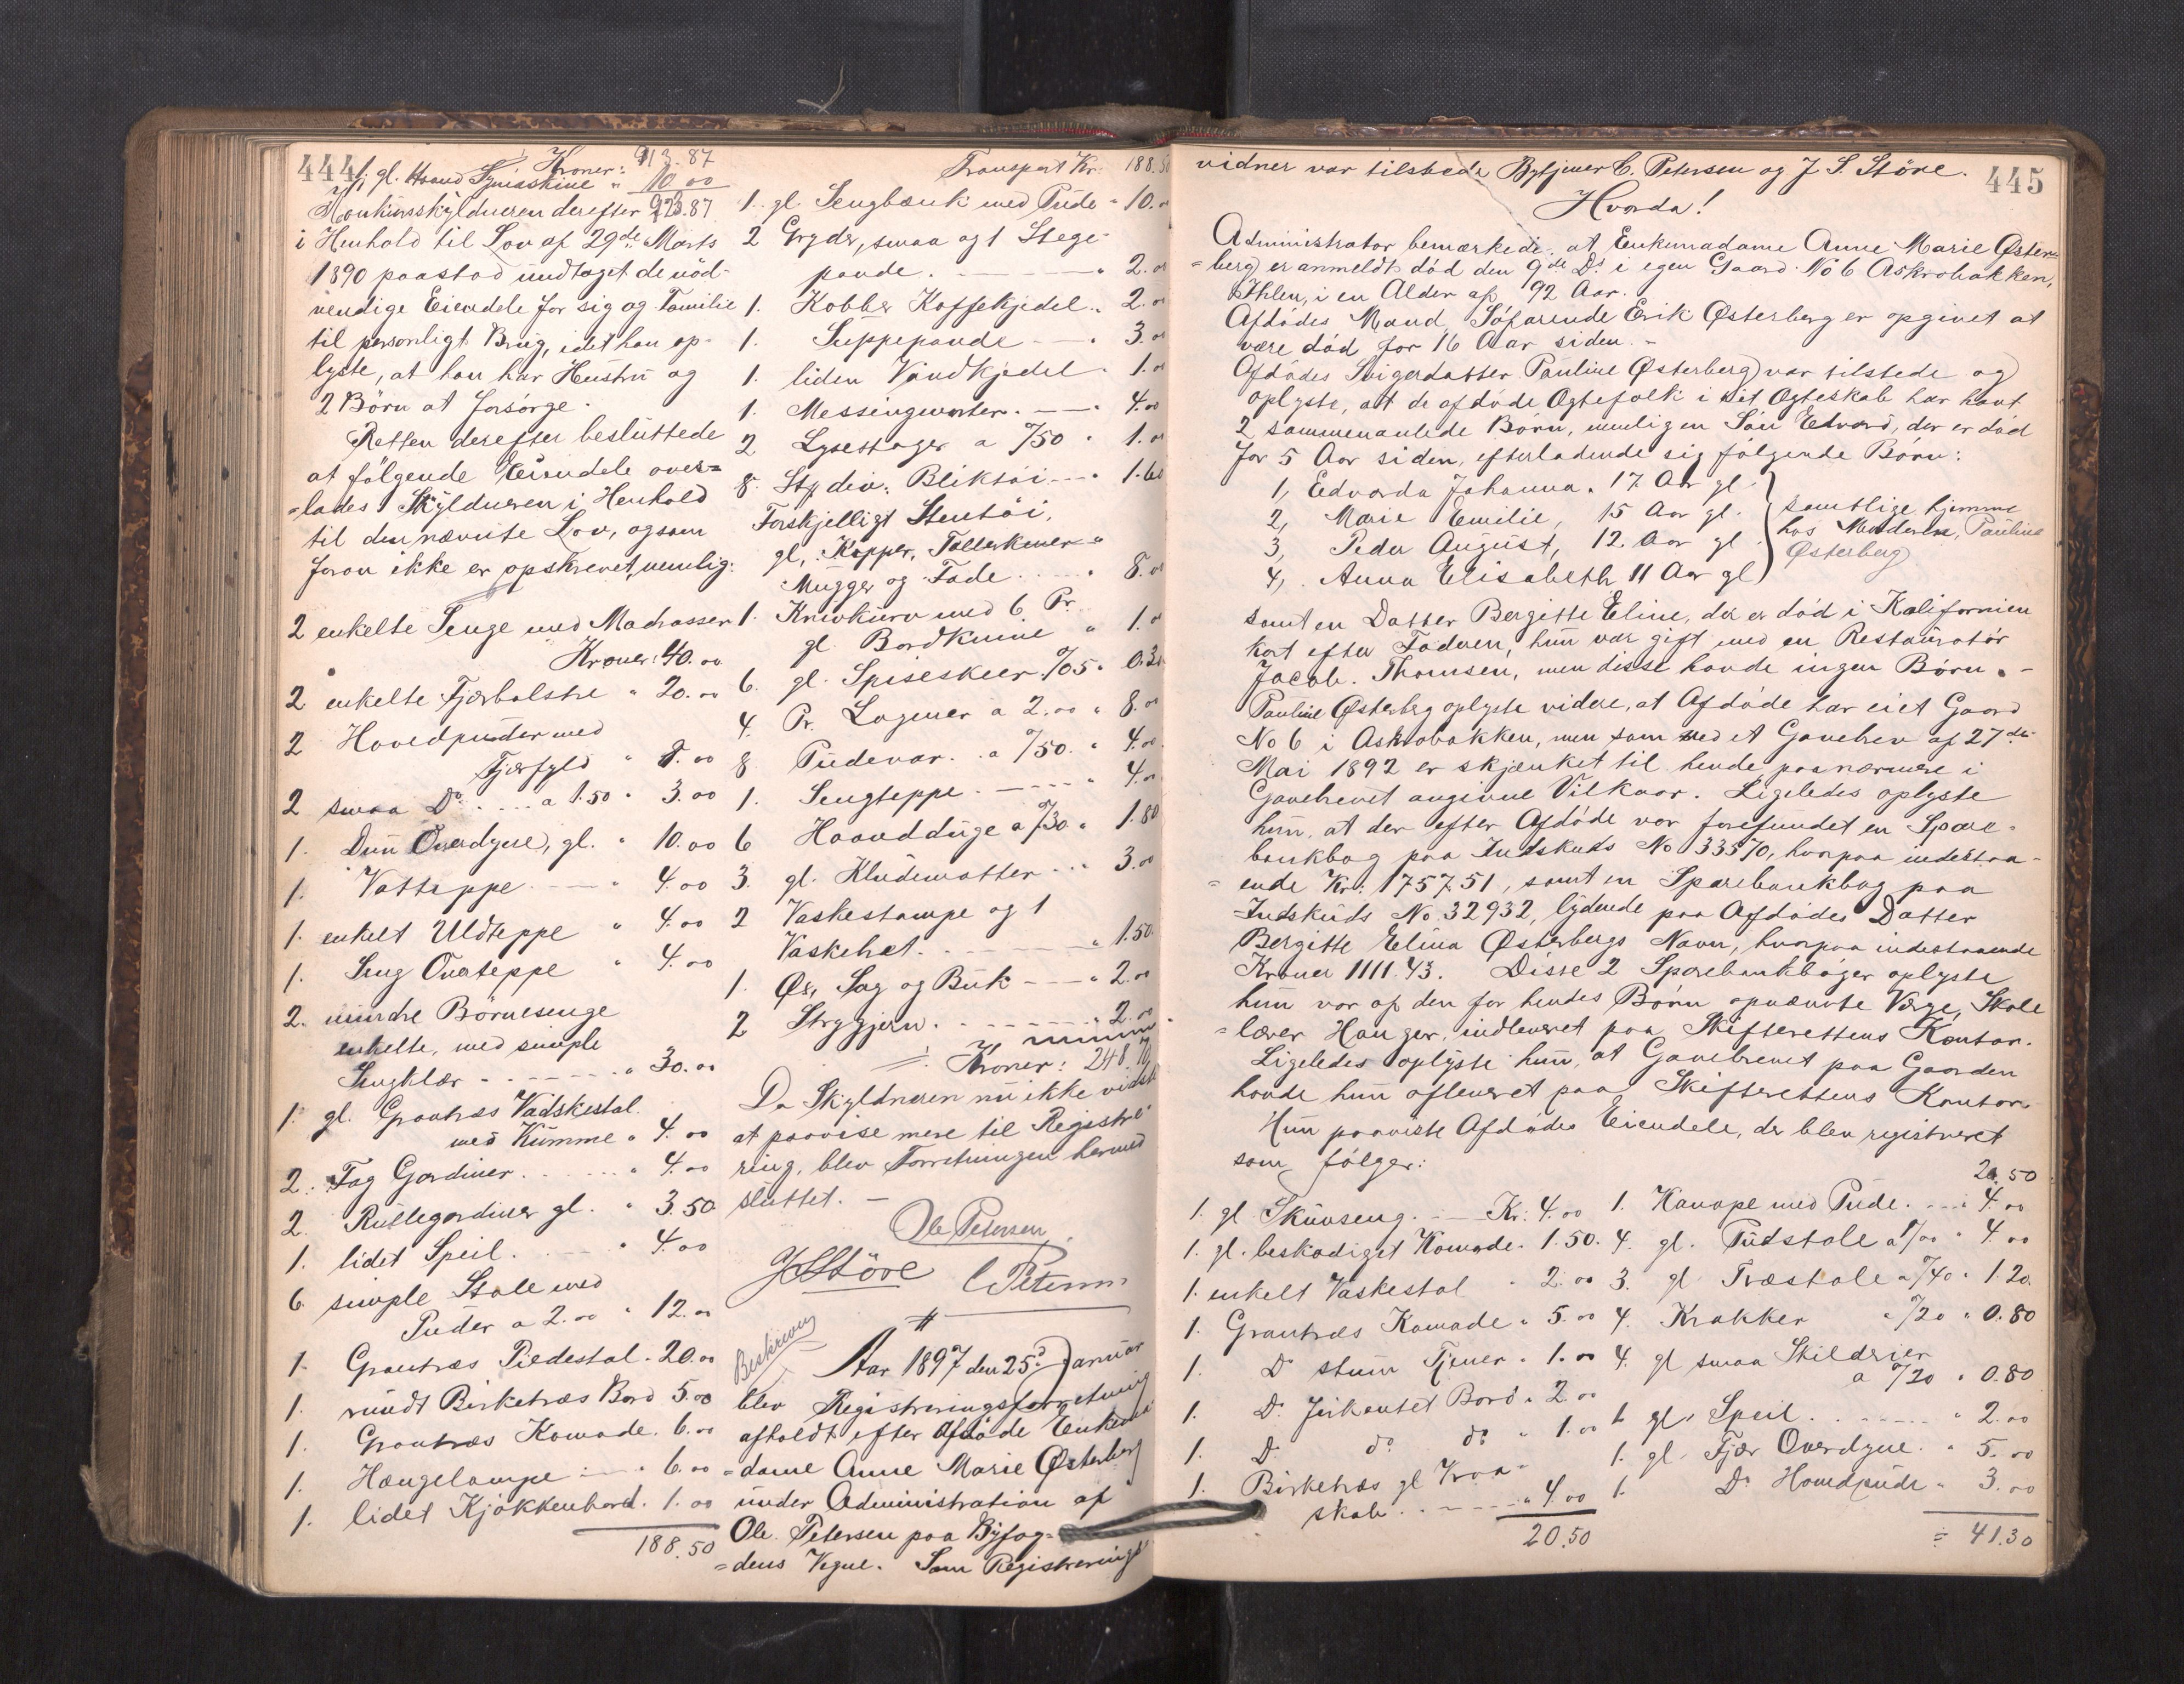 444
Kroner: 913.87
1. gl. Haand Symaskine " 10 00
Konkursskyldneren derefter 923.87
i Henhold til Lov af 29de Marts
1890 paastod undtaget de nöd-
vendige Eiendele for sig og Familie
til personligt Brug, idet han op-
lyste, at han har Hustru og
2 Börn at forsörge.
Retten derefter besluttede
at fölgende Eiendele over=
=lades Skyldneren i Henhold
til den nævnte Lov, og som
foran ikke er opskrevet, nemlig:
2 enkelte Senge med Madrasser
Kroner: 40.00
2 enkelte Fjærbolstre " 20.00
2 Hovedpuder med
Fjærfyld " 8.00
2 smaa Do. a 1.50 " 3.00
1. Dun Overdyne, gl. " 10.00
1. Vatteppe " 4.00
1. enkelt Uldteppe " 4.00
1. Seng Overteppe " 4.00
2. mindre Börnesenge
enkelte, med simple
Sengklær " 30.00
1. gl. Grantræs Vadskestol
med Kumme " 4.00
2. Fag Gardiner " 4.00
2. Rullegardiner gl. " 3.50
1. lidet Speil. " 4.00
6. simple Stole med
Puder a 2.00 " 12.00
1. Grantræs Piedestal " 20.00
1. rundt Birketræs Bord 5.00
1. Grantræs Komode. 6.00
1. Hængelampe " 6.00
1. lidet Kjökkenbord. 1.00
188.50
Transport Kr. 188.50
1. gl. Sengbænk med Pude " 10.00
2 Gryder, smaa og 1 Stege-
pande. " 2.00
1. Kobber Kaffekjedel " 2.00
1. Suppepande " 3.00
1. liden Vandkjedel " 1.00
1. Messingmorter. " 4.00
2 Lysestager a %50 " 1.00
8. Stk div. Bliktöi " 1.60
Forskjelligt Stentöi,
gl. Kopper, Tallerkener
Mugger og Fade " 8.00
1. Knivkurv med 6 Pr.
gl. Bordknive " 1.00
6. gl. Spiseskeer %05 " 0.30
4. Pr. Lagener a 2.00 " 8.00
8 Pudevar. a %50. " 4.00
1. Sengteppe " 4.00
6 Haandduge a %30 " 1.80
3. gl. Kludematter " 3.00
2 Vaskestampe og 1
Vaskebræt. " 1.50
1. Øx, Sag og Buk " 2.00
2 Strygjern. " 2.00
Kroner: 248.70
Da Skyldneren nu ikke vidste
at paavise mere til Registre
ring, blev Forretningen hermed
sluttet. -
Ole Petersen
J S Störe C Petersen
Beskreven
Aar 1897 den 25d Januar
blev Registreringsforretning
afholdt efter Afdöde Enkema
=dame Anne Marie Østerberg
under Administration af
Ole Petersen paa Byfog=
=dens Vegne. Som Registrerings
445
vidner var tilstede Bytjener C. Petersen og J. S. Störe.
Hvorda!
Administrator bemærkede, at Enkemadame Anne Marie Østen=
=berg er anmeldt död den 9de Ds i egen Gaard No 6 Askrobakken,
Ihlen, i en Alder af 92 Aar.
Afdödes Mand, Söfarende Erik Østerberg er opgivet at
være död for 16 Aar siden. -
Afdödes Svigerdatter Pauline Østerberg var tilstede og
oplyste, at de afdöde Ægtefolk i sit Ægteskab har havt
2 sammenavlede Börn, nemlig en Sön Edvard, der er död
for 5 Aar siden, efterladende sig fölgende Börn:
1, Edvarda Johanna, 17 Aar gl.
2, Marie Emilie, 15 Aar gl.
3, Peder August, 12. Aar gl
4, Anna Elisabeth 11 Aar gl
samtlige hjemme
hos Moderen, Pauline
Østerberg
samt en Datter Bergitte Eline, der er död i Kalifornien
kort efter Faderen, hun var gift med en Restauratör
Jacob. Thomsen, men disse havde ingen Börn. -
Pauline Østerberg oplyste videre, at Afdöde har eiet Gaard
No 6 i Askrobakken, men som ved et Gavebrev af 27de
Mai 1892 er skjænket til hende paa nærmere i
Gavebrevet angivne Vilkaar. Ligeledes oplyste
hun, at der efter Afdöde var forefundet en Spare-
bankbog paa Indskuds No 33570, hvorpaa indestaa-
=ende Kr: 1757.51, samt en Sparebankbog paa
Indskuds No 32932, lydende paa Afdödes Datter
Bergitte Elina Østerbergs Navn, hvorpaa indestaaende
Kroner 1111.43. Disse 2 Sparebankböger oplyste
hun var af den for hendes Börn opnævnte Værge, Skole
=lærer Hanger, indleveret paa Skifterettens Kontor.
Ligeledes oplyste hun, at Gavebrevet paa Gaarden
havde hun afleveret paa Skifterettens Kontor.
Hun paaviste Afdödes Eiendele, der blev registreret
som fölger:
1. gl Skuvseng. Kr: 4.00
1. gl. beskadiget Komode. 1.50.
1. enkelt Vaskestol " 2.00
1. Grantræs Komode " 5.00
1. Do stum Tjener " 1.00
1. Do firkantet Bord " 2.00
1. Do do do " 1.00
1. Birketræs gl Vraa-
skab " 4.00
20.50
20.50
1. Kanape med Pude. " 4.00
4. gl. Pudstole a 1/00 " 4.00
3. gl Træstole a %40 " 1.20
4. Krakker " %20 " 0.80
4. gl smaa Skilderier
a %20 " 0.80
1 gl. Speil. " 2.00
1. gl. Fjær Overdyne. " 5.00
1. Do Hovedpude " 3.00
= 41.30